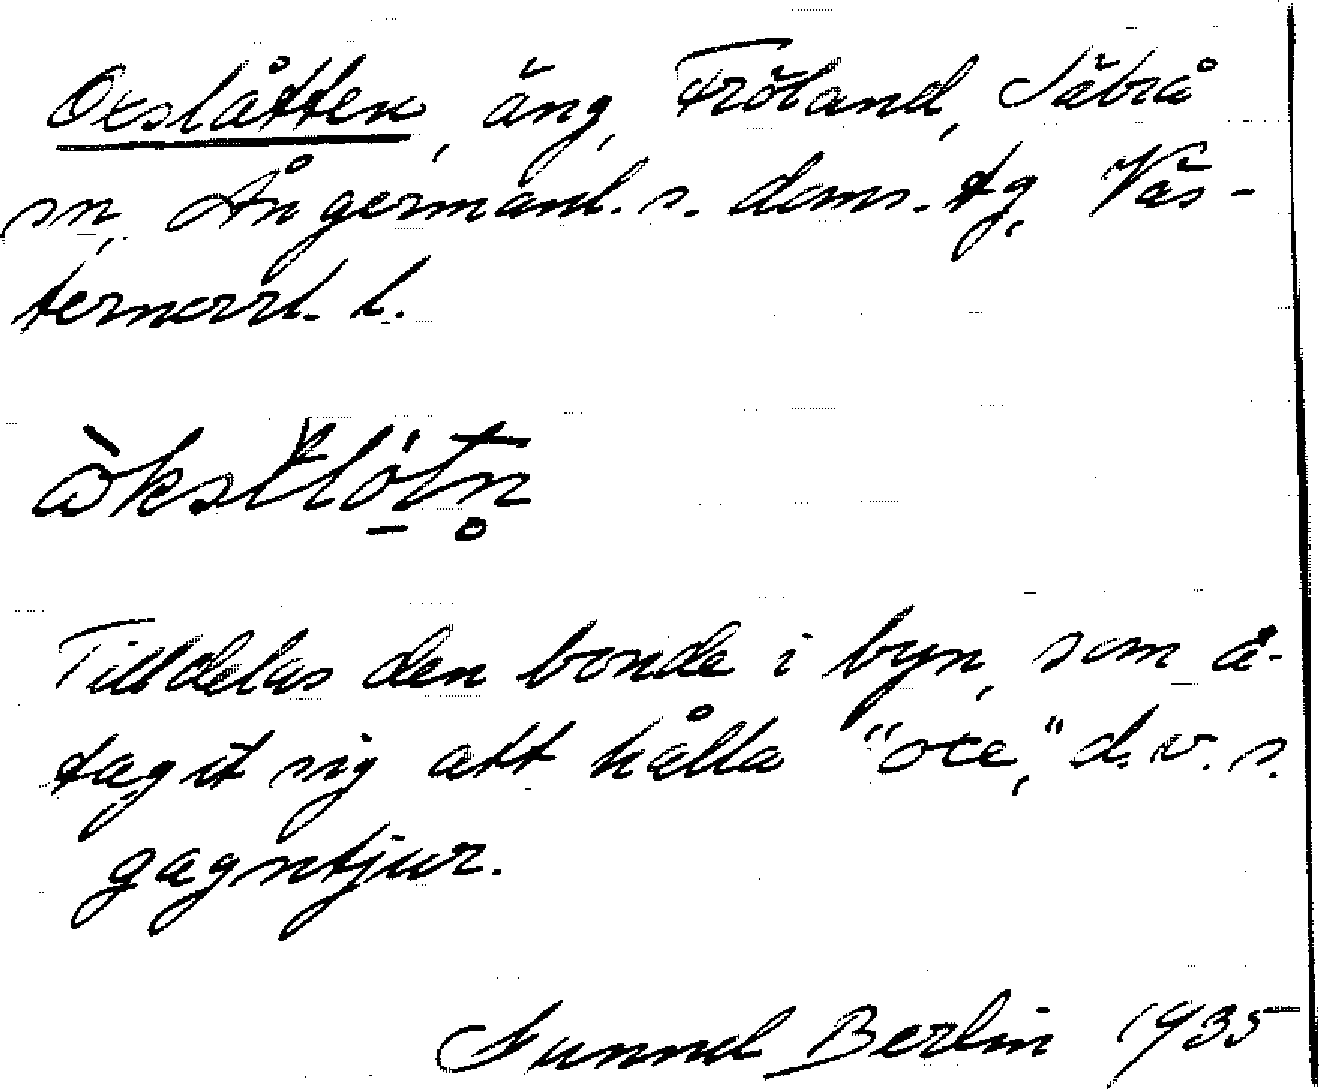 Oxslåtten, äng, Fröland, Säbrå
sn, Ångermanl. s. doms. tg, Väs-
ternorrl. l.
Tilldelas den bonde i byn, som å-
tagit sig att hålla "oxe," d.v.s.
gagntjur.
Gunnel Berlin 1935